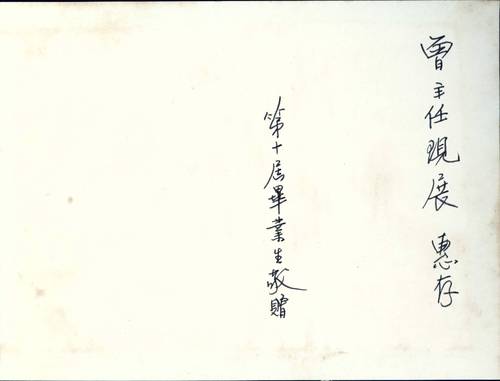 曾主任現展 惠存
第十屆畢業生敬贈